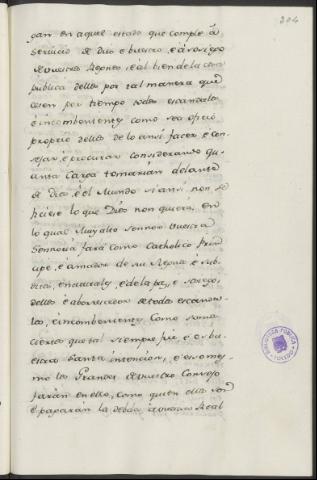 204
gan en aquel estado que comple á
servicio de Dios e buestro, e á sosiego
de vuestros Regnos, e al bien de la cosa
publica dellos por tal manera que
cesen por tiempo todos escandalos
é incombenientes, como sea oficio
proprio dellos de lo ansi facer, e con-
sejar, é procurar considerando qu-
anta carga tomarian delante
de Dios, é el Mundo si ansi non se
ficiese lo que Dios non quiera, en
lo qual Muy alto Sennor vuestra
Sennoria fará como Catholico Prin
cipe, é amador de su Regno é sub-
ditos, e naturales, é de la paz, e sosiego,
dellos é aborrecedor de todos escanda-
los, é incombenientes, como somos
ciertos que tal siempre fue é es bu-
estra santa intencion, é eso mes-
mo los Grandes de vuestro Consejo
farán en ello, como quien ellos son
é pagarán la debda á vuestra Real
BIBLIOTECA PUBLICA
TOLEDO